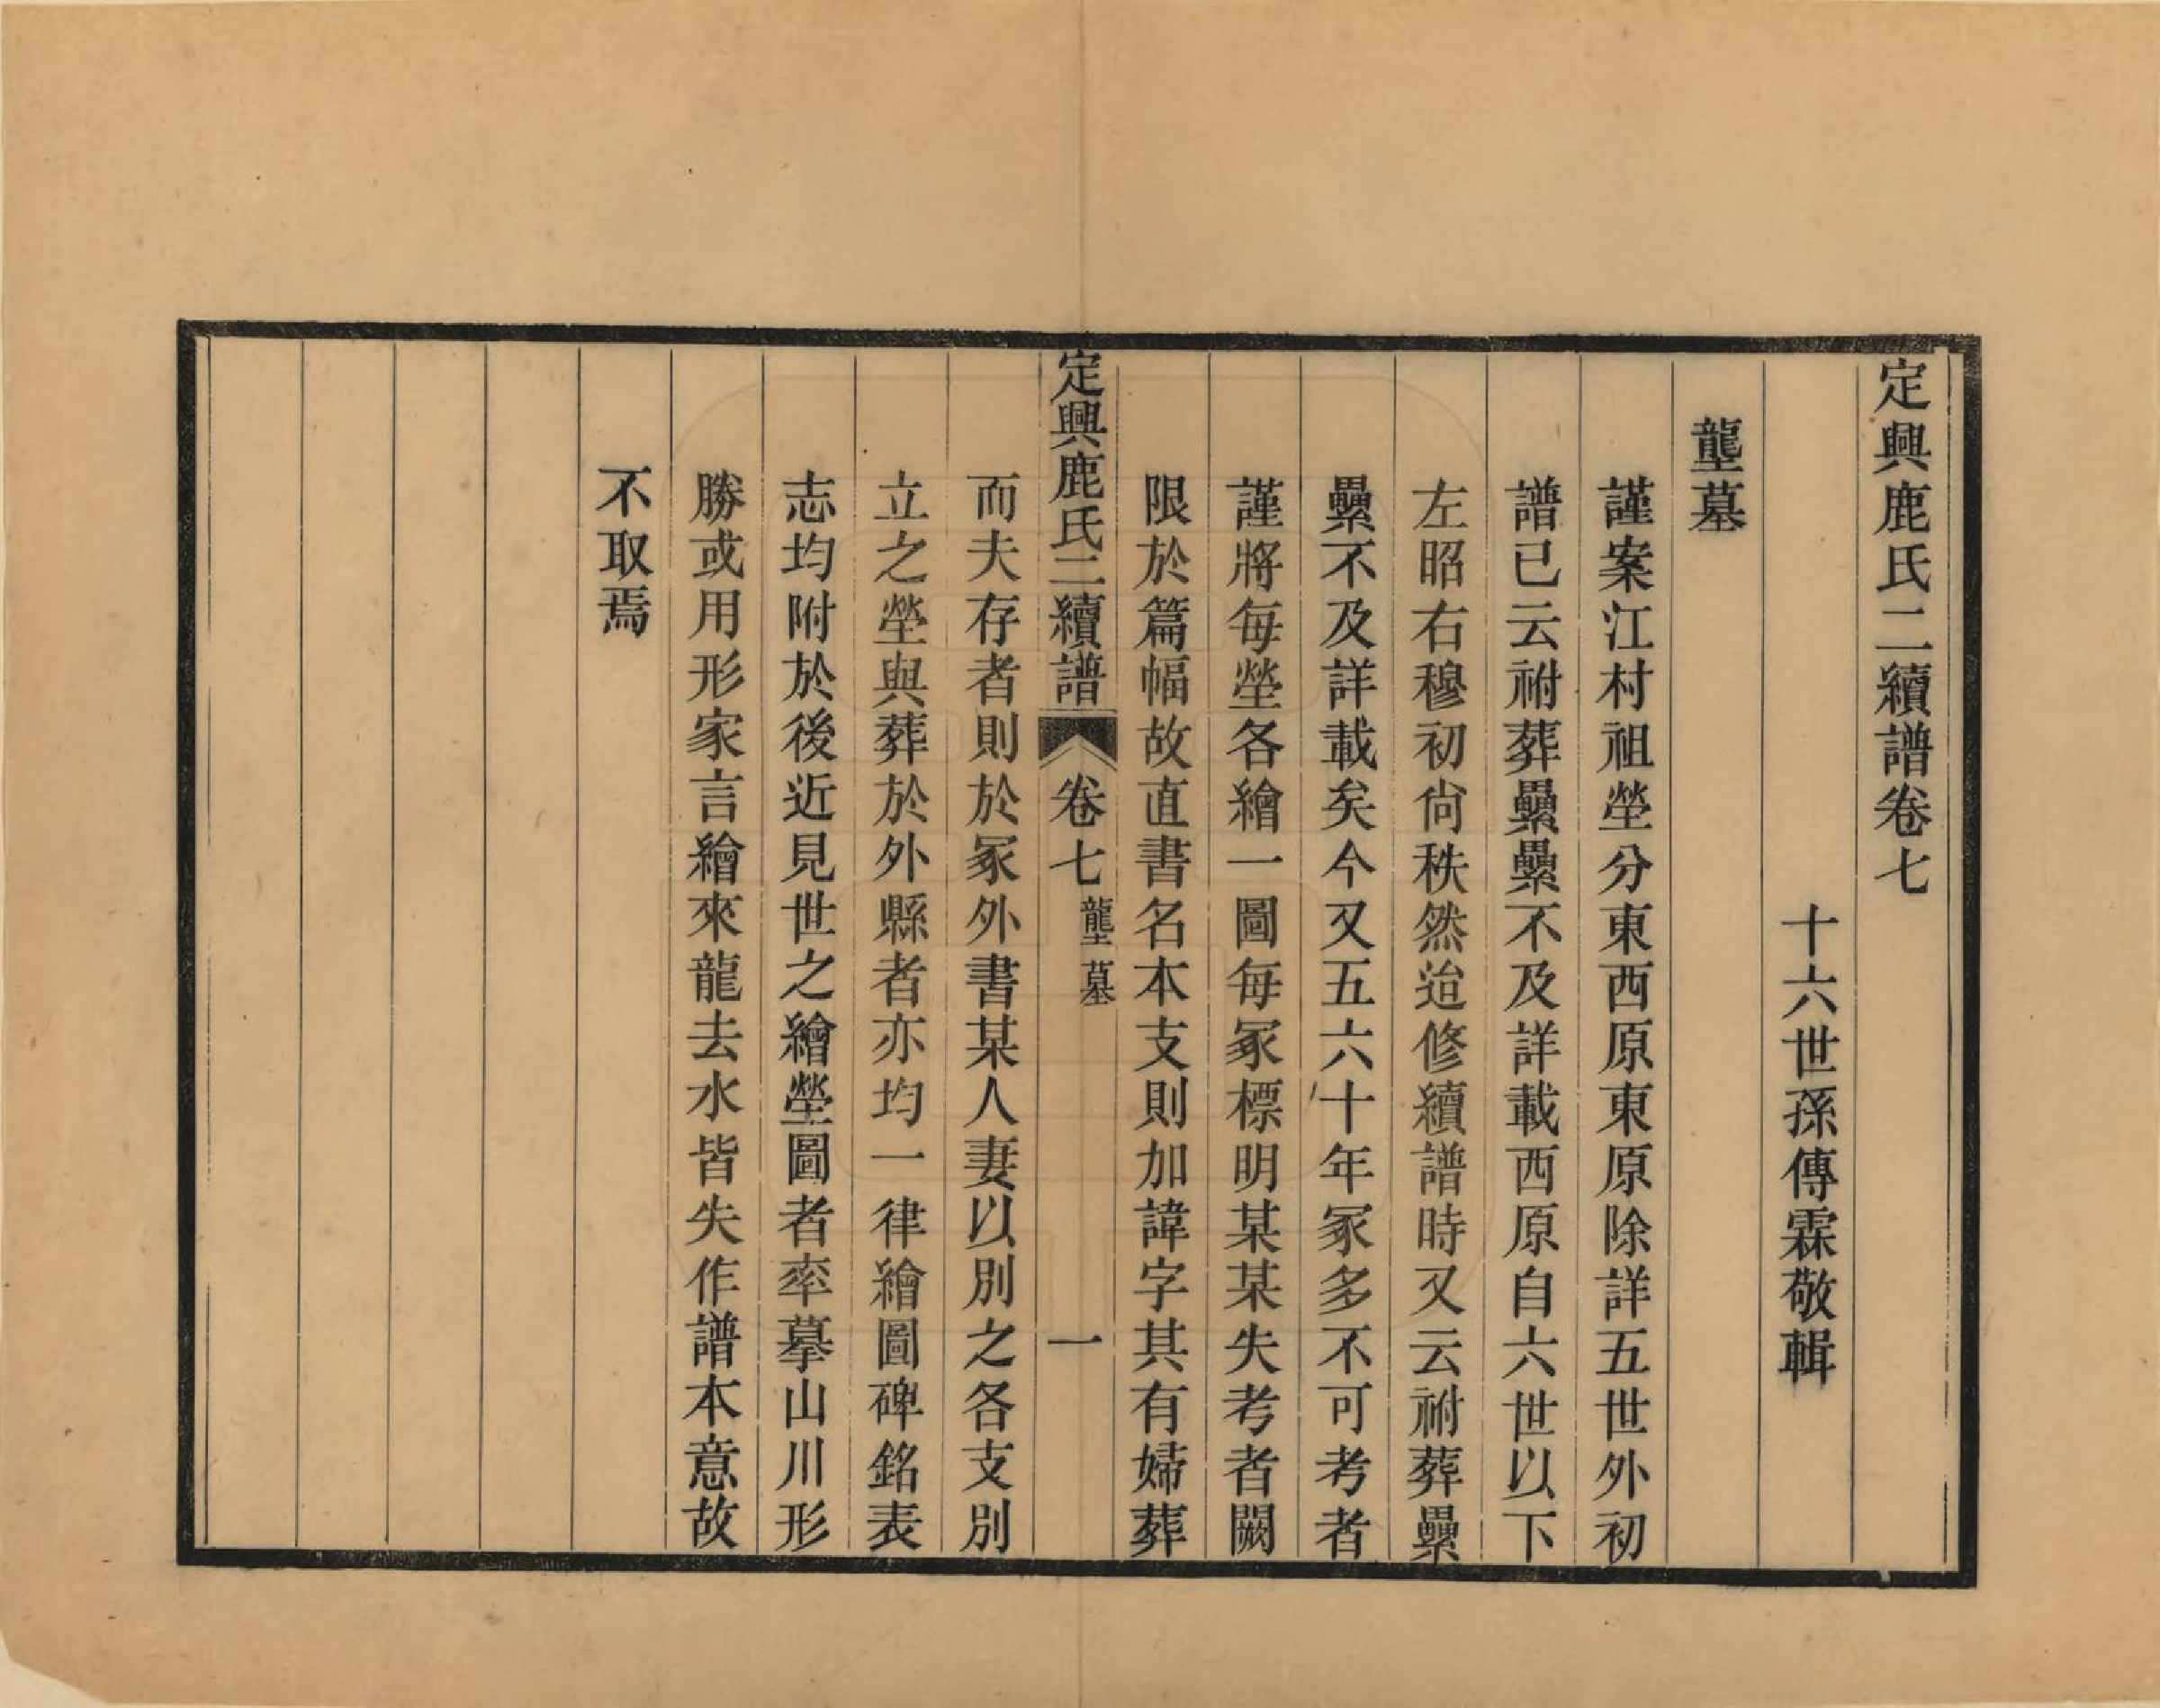 定興鹿氏二續譜卷七
十六世孫傳霖敬輯
壟墓
謹案江村祖塋分東西原東原除詳五世外初
譜已云祔葬纍纍不及詳載西原自六世以下
左昭右穆初尙秩然迨修續譜時又云祔葬纍
纍不及詳載矣今又五六十年冢多不可考者
謹將每塋各繪一圖每冢標明某某失考者闕
限於篇幅故直書名本支則加諱字其有婦葬
定興鹿氏二續譜 卷七 壟墓 一
而夫存者則於冢外書某人妻以別之各支別
立之塋與葬於外縣者亦均一律繪圖碑銘表
志均附於後近見世之繪塋圖者率摹山川形
勝或用形家言繪來龍去水皆失作譜本意故
不取焉